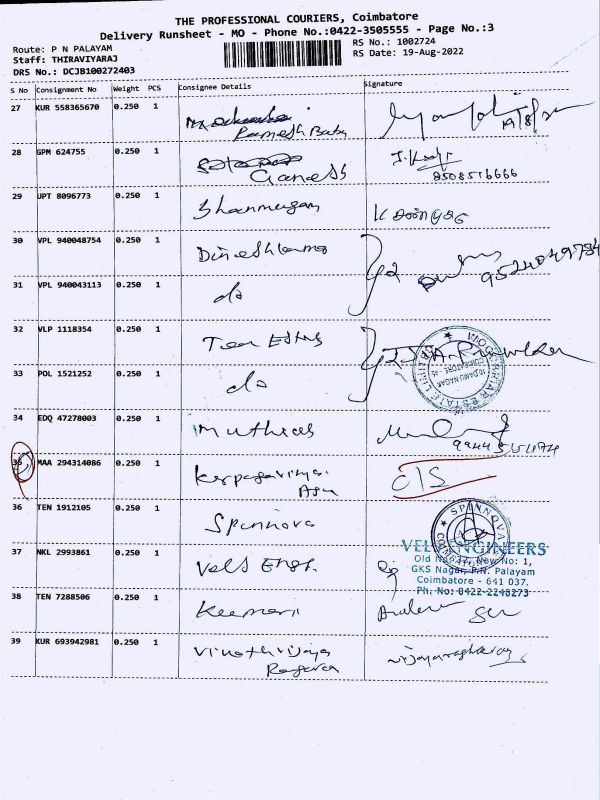 THE PROFESSIONAL COURIERS, Coimbatore
Delivery Runsheet - MO - Phone No.:0422-3505555 - Page No.:3
Route: P N PALAYAM
RS No.: 1002724
Staff: THIRAVIYARAJ
RS Date: 19-Aug-2022
DRS No.: DCJB100272403
S No Consignment No Weight PCS Consignee Details Signature
27 KUR 558365670 0.250 1
Ramesh Babu 19/8/22
28 GPM 624755 0.250 1
Ganesh 8508516666
29 UPT 8096773 0.250 1 Shanmugam
30 VPL 940048754 0.250 1 Dineshkumar
31 VPL 940043113 0.250 1 do
32 VLP 1118354 0.250 1 Tea Estates
33 POL 1521252 0.250 1 do
34 EDQ 47278003 0.250 1 Muthias
35 MAA 294314086 0.250 1 Karpagavinya C/S
36 TEN 1912105 0.250 1 Spinnova
SPINNOVA
COIMBATORE
37 NKL 2993861 0.250 1 Vels Engr.
VELS ENGINEERS
Old No: 37, New No: 1,
GKS Nagar, P.N. Palayam
Coimbatore - 641 037.
Ph. No: 0422-2248273
38 TEN 7288506 0.250 1 Kumari
39 KUR 693942981 0.250 1 Vinothvijaya Vijayaraghavan
Ragava